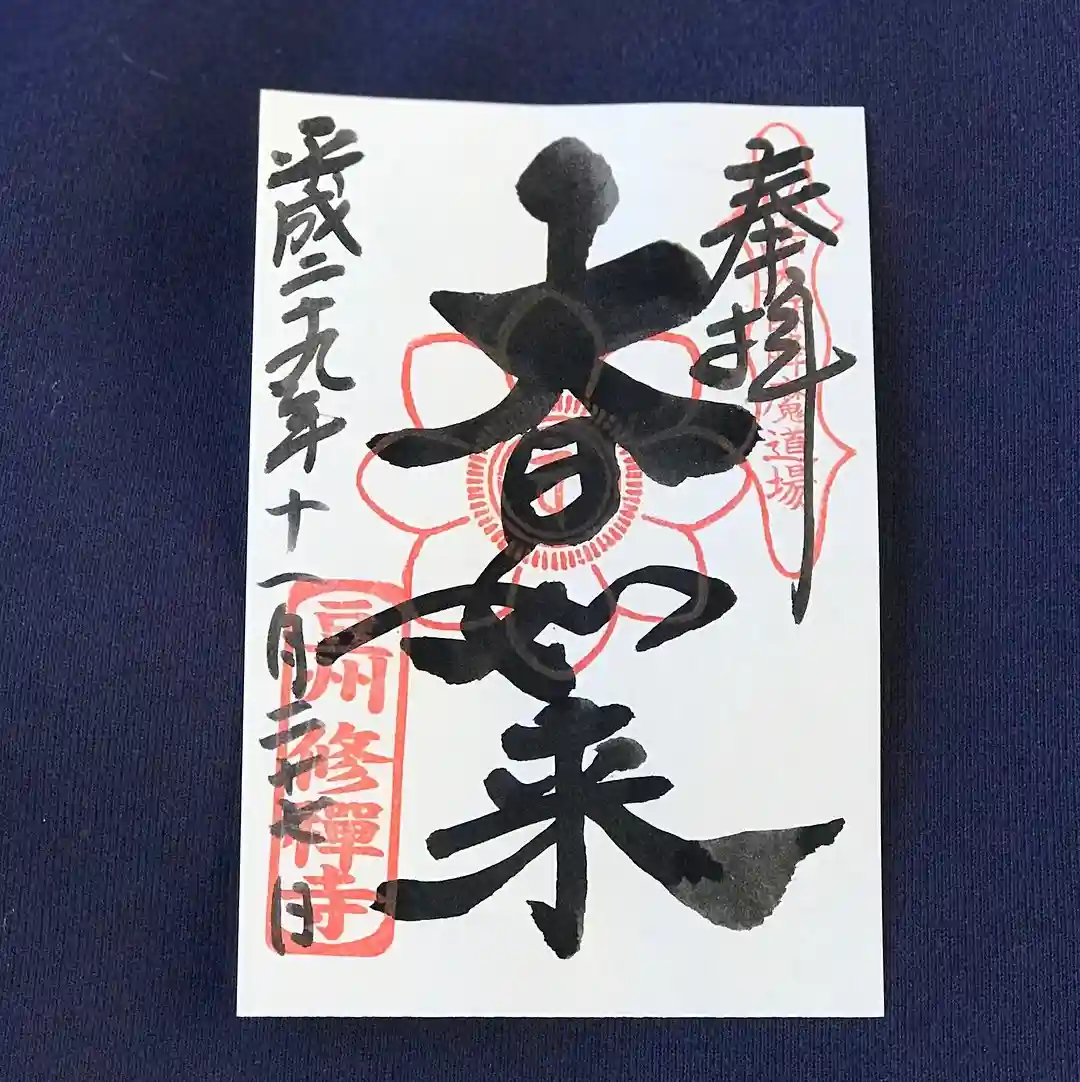 奉拝
魔道場
大日如来
平成二十九年十一月二十七日
豆州修禪寺